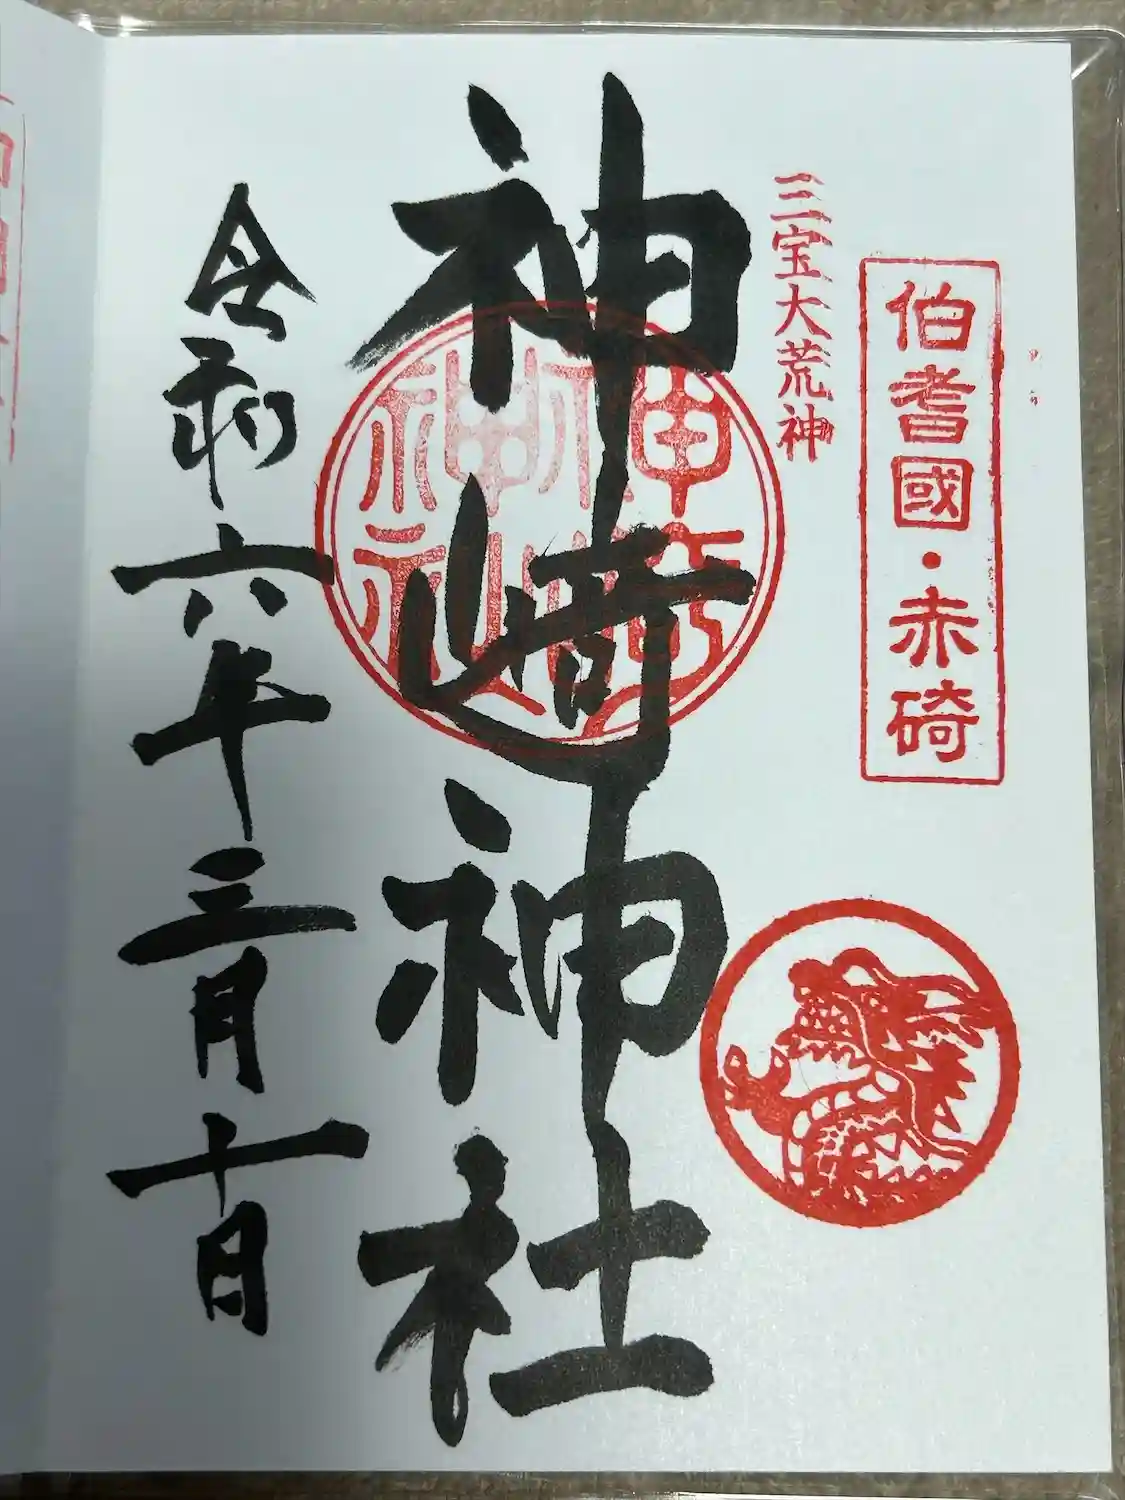 伯耆國・赤碕
三宝大荒神
神崎神社
令和六年三月十日